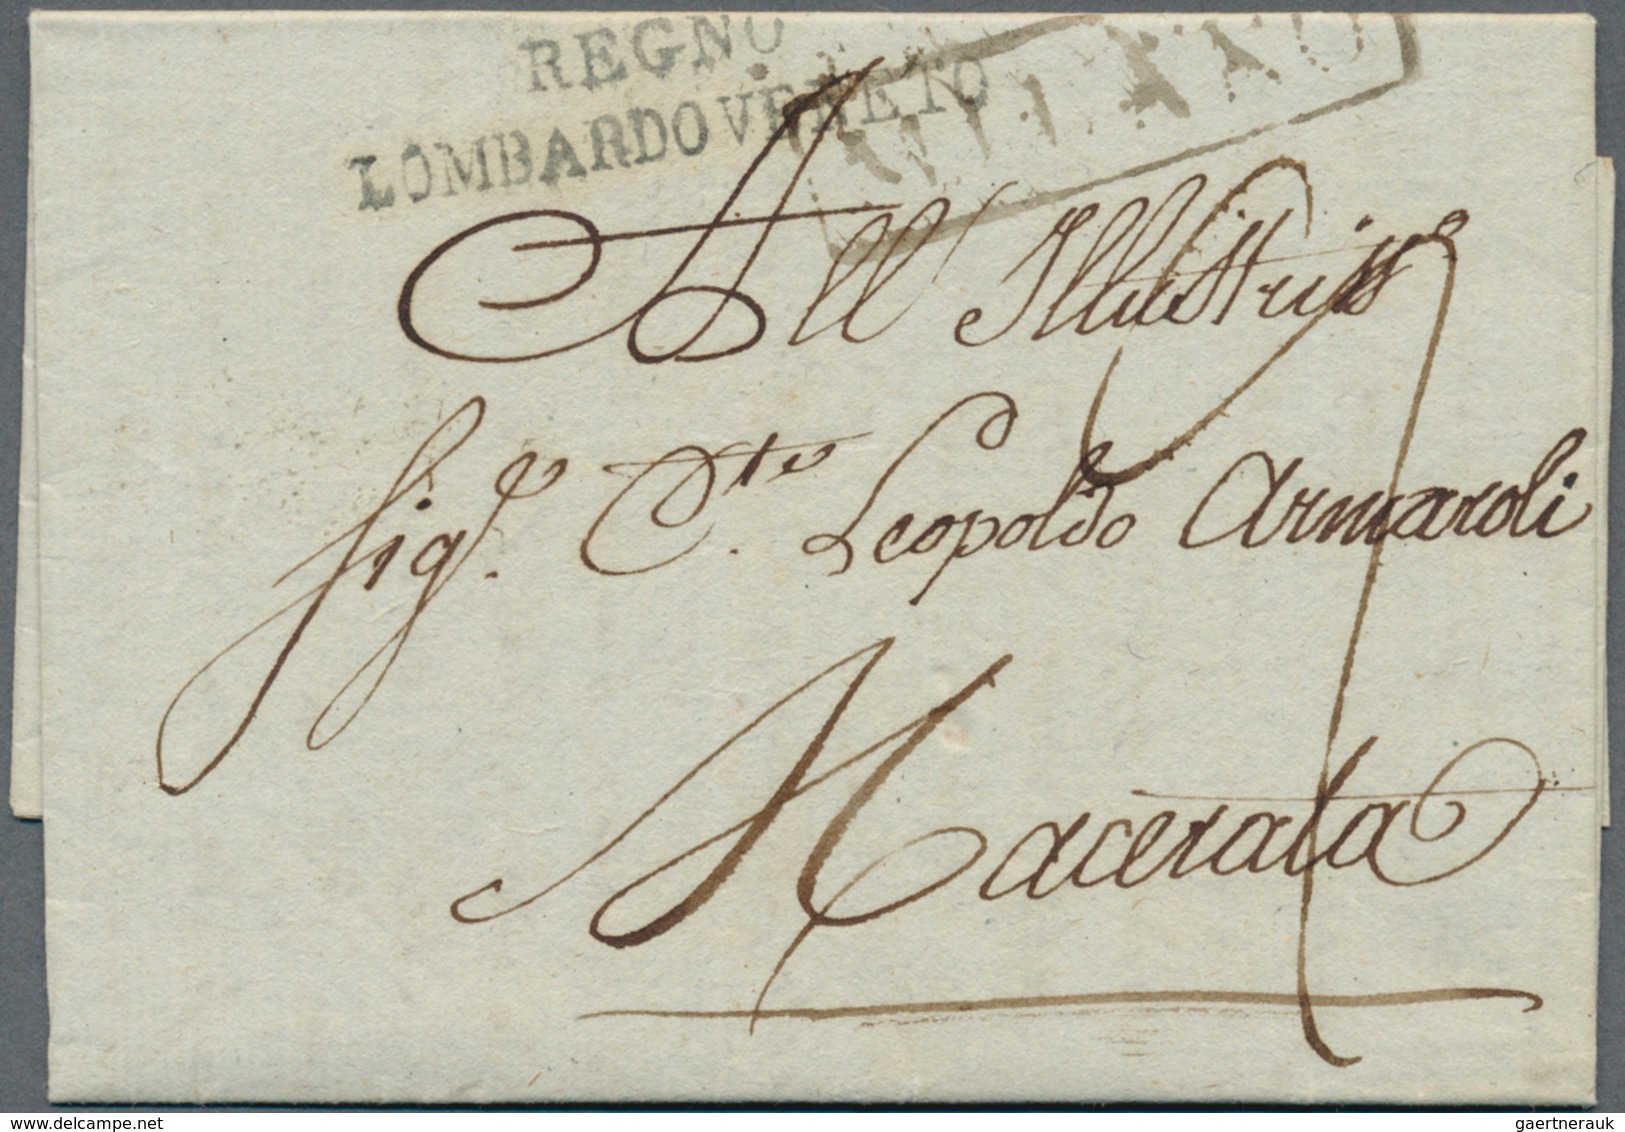 REGNO
LOMBARDOVENETO
MILANO
All Illustriss.º
Sig.r C.te Leopoldo Armaroli
Macerata
gaertnerauk